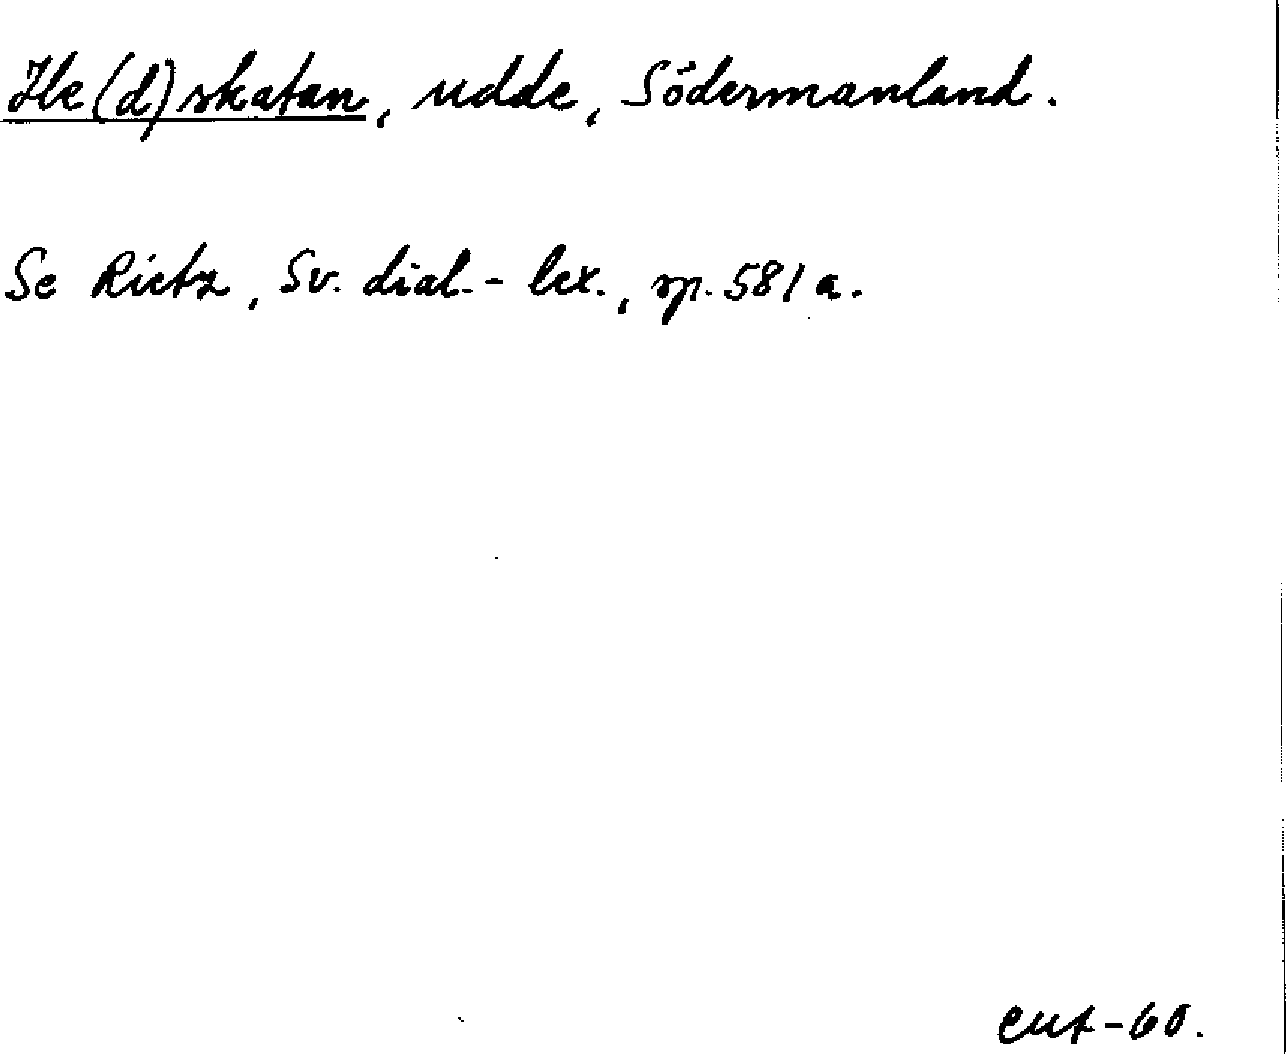 He(d)skatan, udde, Södermanland.
Se Rietz, Sv. dial.-lex., sp. 581 a.
eut-60.